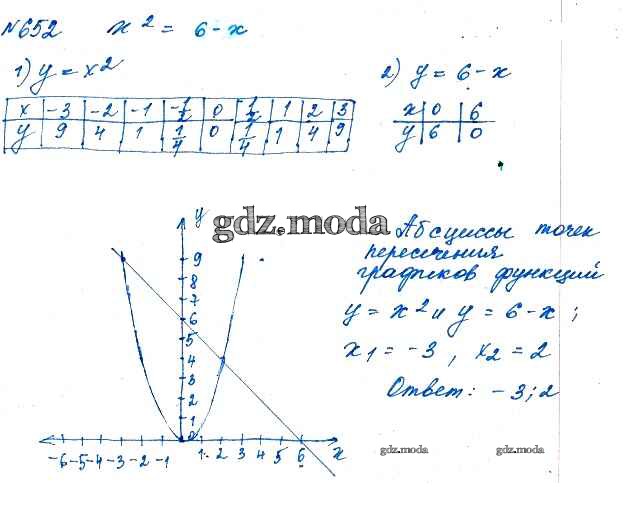 №652 x² = 6-x
1) y = x²
2) y = 6-x
x -3 -2 -1 -1/2 0 1/2 1 2 3
y 9 4 1 1/4 0 1/4 1 4 9
x 0 6
y 6 0
gdz.moda
Абсциссы точек
пересечения
графиков функций
y = x² и y = 6-x;
x₁ = -3, x₂ = 2
Ответ: -3; 2
y
9
8
7
6
5
4
3
2
1
0
-6 -5 -4 -3 -2 -1 1 2 3 4 5 6 x
gdz.moda gdz.moda